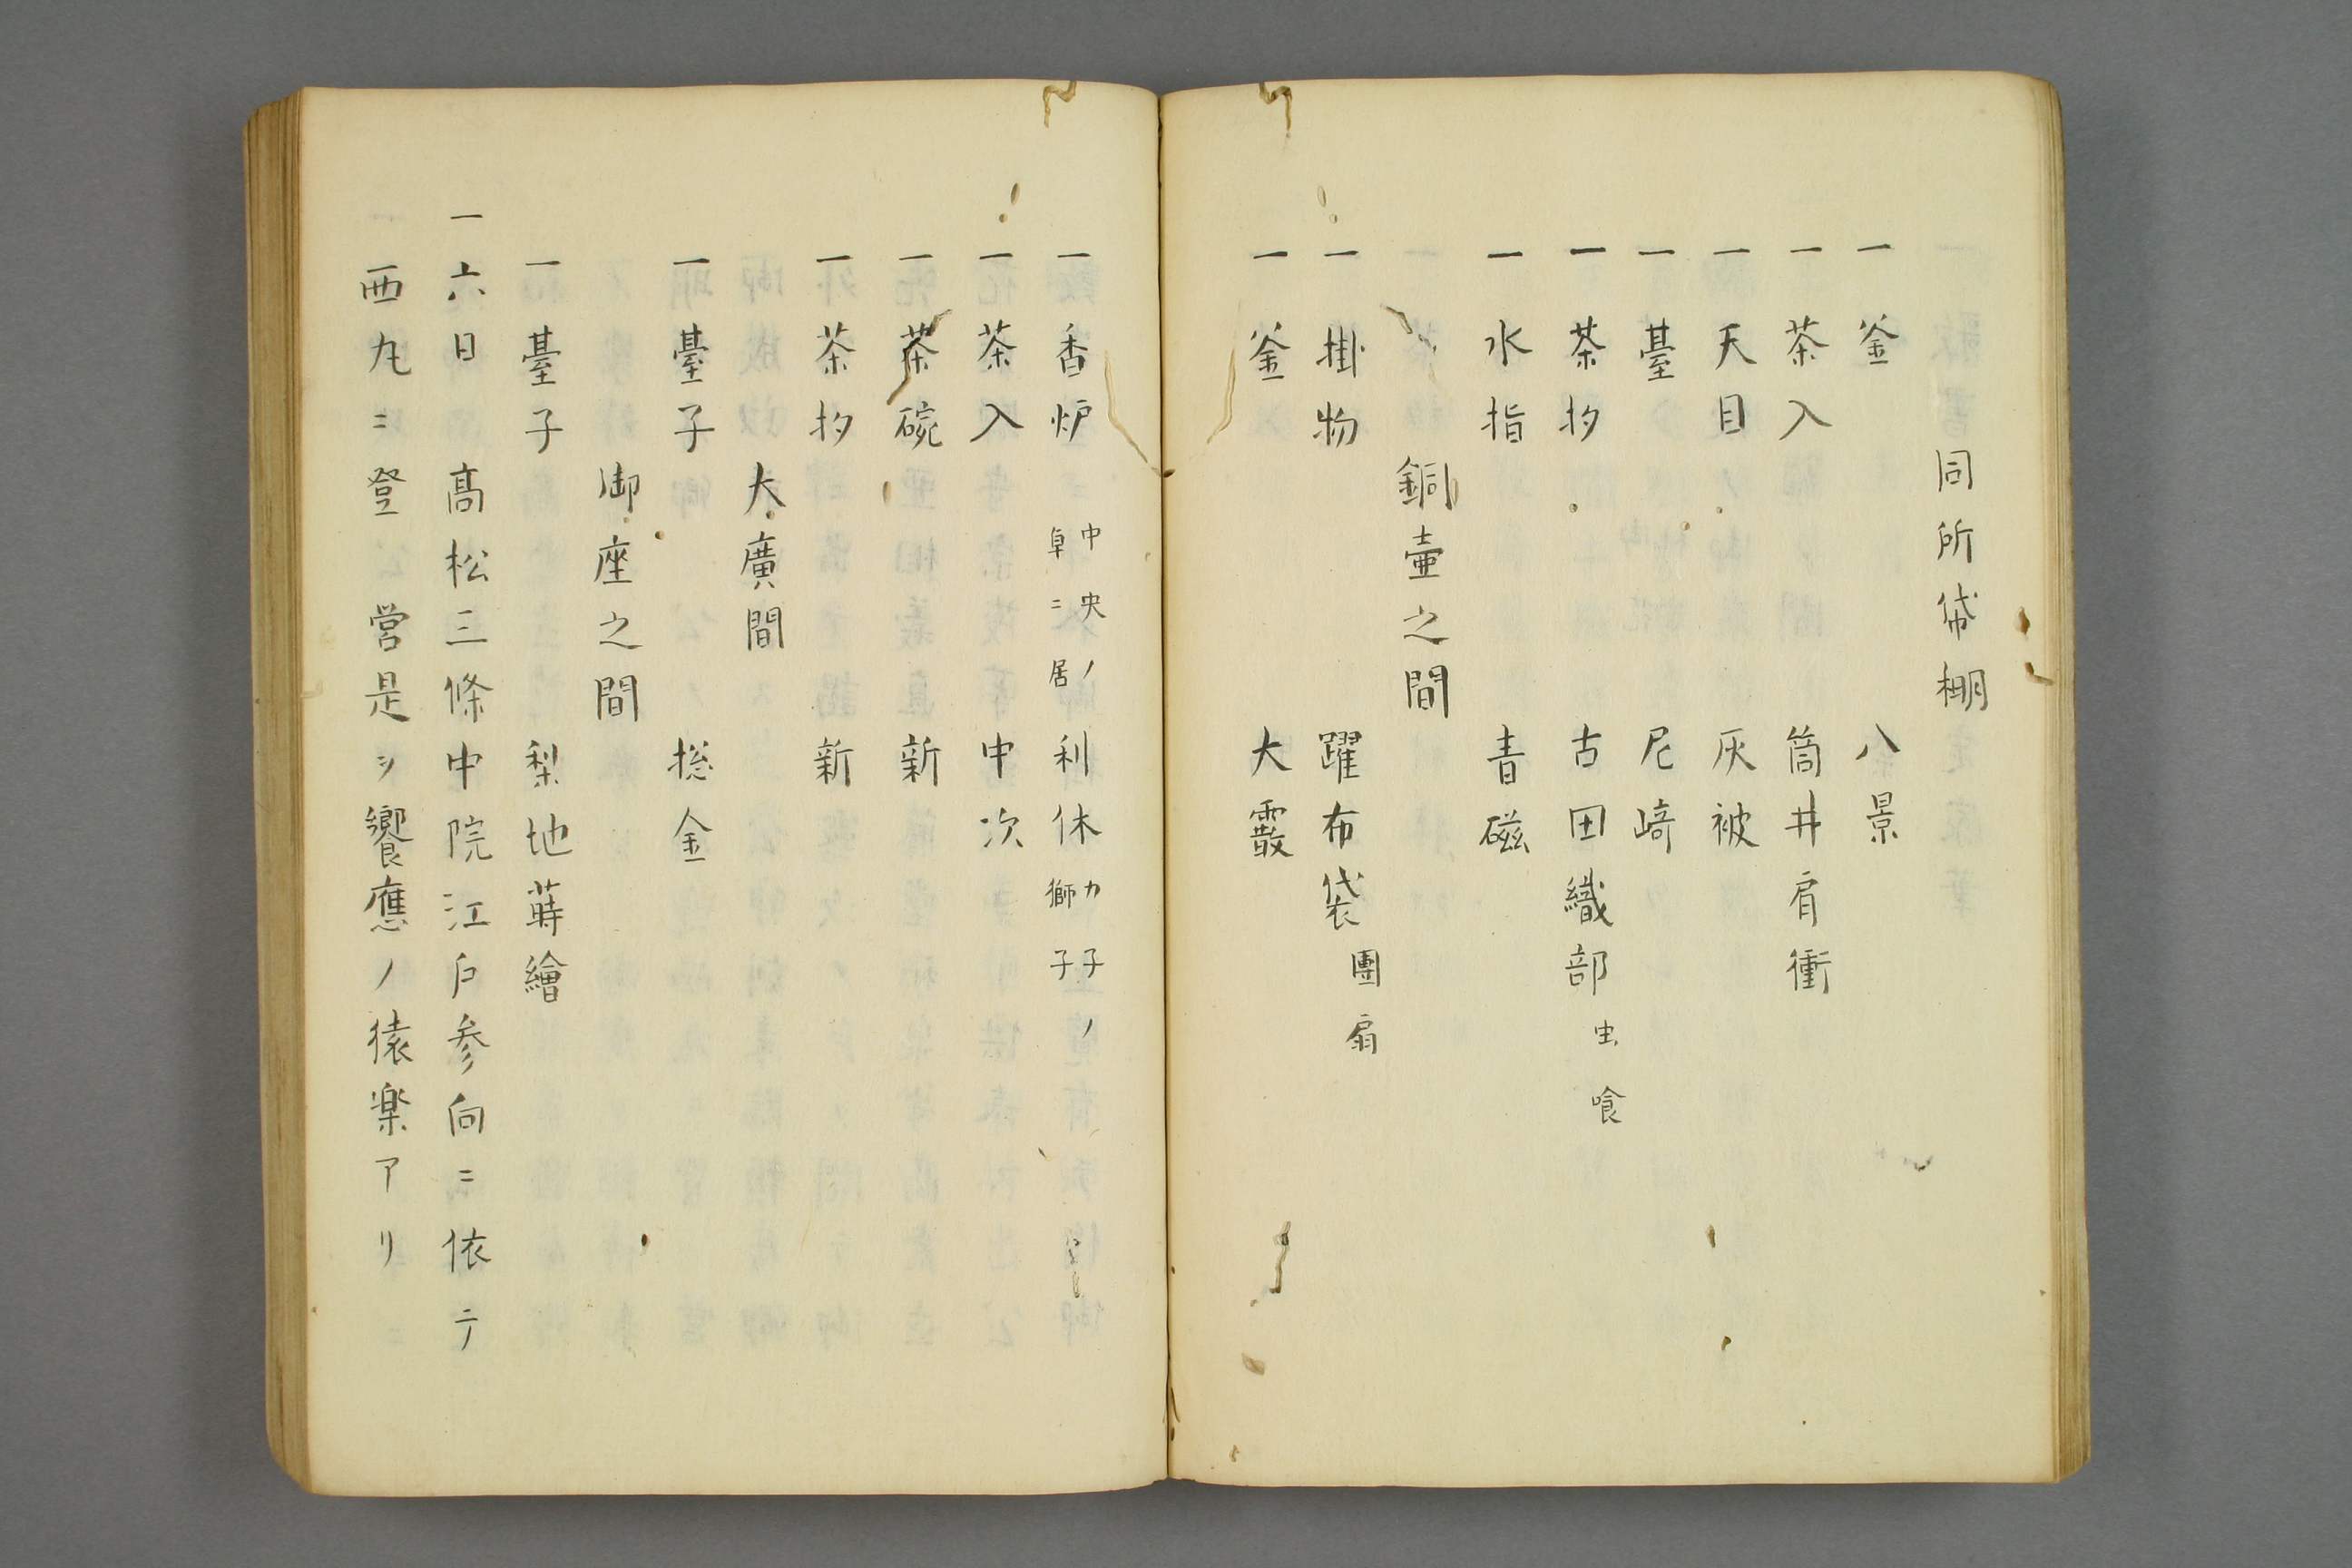 同所袋棚
一釜　八景
一茶入　筒井肩衝
一天目　灰被
一臺　尼﨑
一茶杓　古田織部　虫喰
一水指　青磁
銅壷之間
一掛物　躍布袋　團扇
一釜　大霰
一香炉　中央ノ卓ニ居　利休　カ子ノ獅子
一茶入　中次
一茶碗　新
一茶杓　新
大廣間
一臺子　捴金
御座之間
一臺子　梨地蒔繪
一六日　髙松三條中院江戸参向ニ依テ
西丸ニ登　営是ヲ饗應ノ猿楽アリ